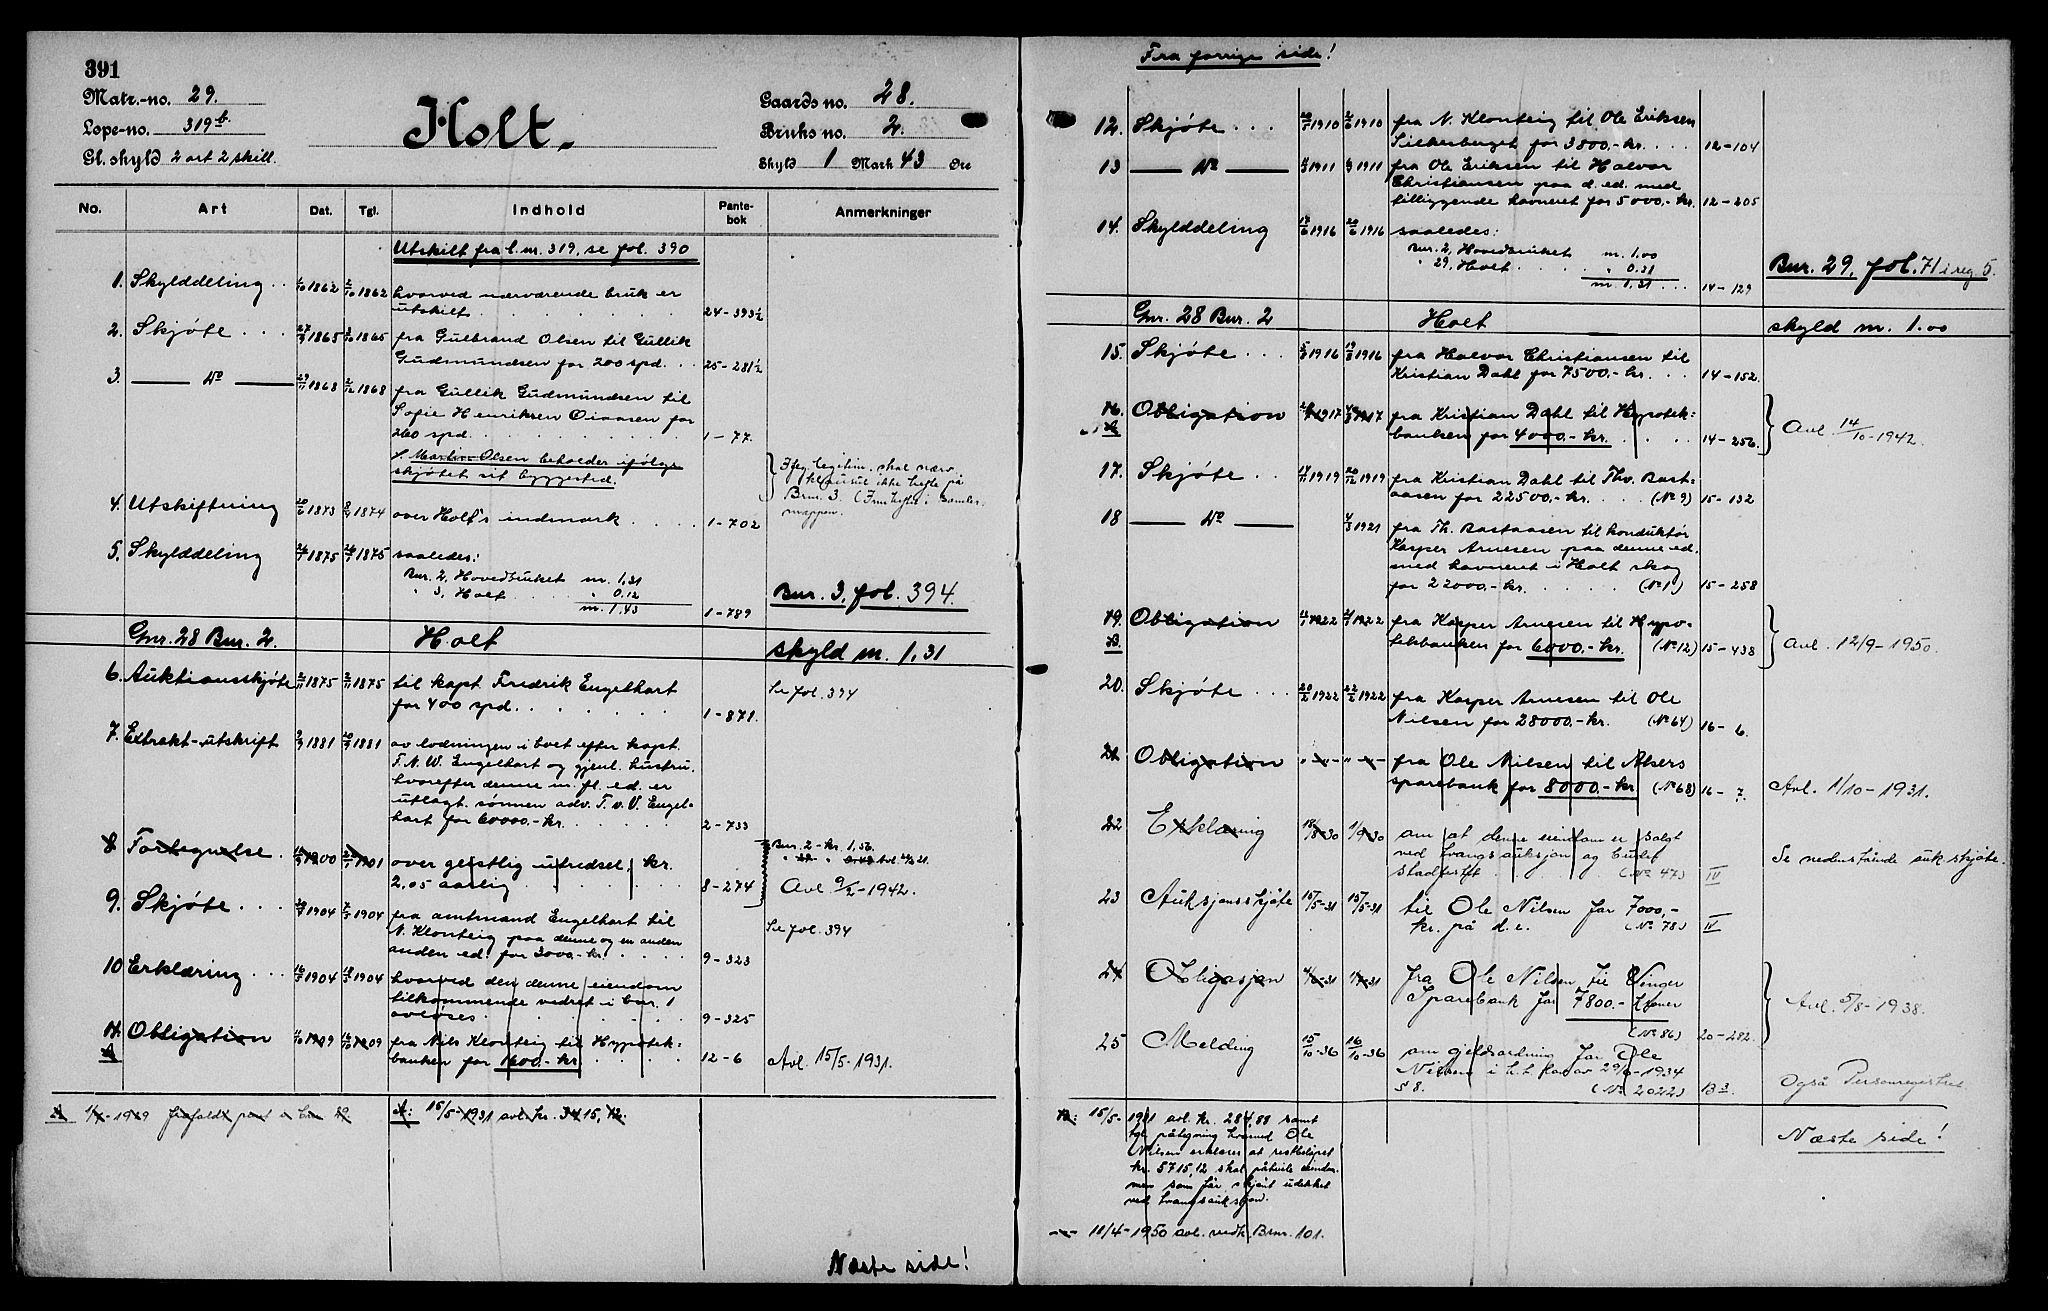 391
Matr.-no. 29.
Løpe-no. 319 b.
Gl. skyld 2 ort 2 skill.
Holt.
Gaards no. 28.
Bruks no. 2.
Skyld 1 Mark 43 Øre
No. Art Dat. Tgl. Indhold Pante-bok Anmerkninger
Utskilt fra l.nr. 319, se fol. 390
1. Skylddeling . . 1862 1862 hvorved nærværende bruk er
utskilt 24-393½
2. Skjøte . . . 27/9 1865 1865 fra Gulbrand Olsen til Gullik
Gudmundsen for 200 spd. . . 25-281½
3. — do — 1868 1868 fra Gullik Gudmundsen til
Sofie Henriksen Oiaasen for
260 spd. 1-77.
f. Martin Olsen beholder ifølge
skjøtet sit byggested.
Iføg. legitim. skal nærv.
klausul ikke hefte på
Brnr. 3. (Fremheftet i Samler-
mappen.
4. Utskiftning 1873 1874 over Holt's indmark 1-702
5. Skylddeling 1875 1875 saaledes:
Bnr. 2, Hovedbruket m. 1,31
" 3, Holt " 0.12
m. 1.43 1-789
Bnr. 3, fol. 394.
Gnr. 28 Bnr. 2. Holt skyld m. 1,31
6. Auktionsskjøte 1875 1875 til kapt. Fredrik Engelhart
for 400 spd. 1-871.
Se fol. 394
7. Extrakt-utskrift 1881 1881 av lodningen i boet efter kapt.
F. N. W. Engelhart og gjenl. hustru,
hvorefter denne m. fl. ed. er
utlagt sønnen adv. F. v. V. Engel-
hart for 60000.-kr. 2-733
8. Fortegnelse . 1900 1901 over geistlig utredsel, kr.
2,05 aarlig 8-274
Bnr. 2 - kr. 1,56.
Avl. 9/2-1942.
9. Skjøte . . . 1904 1904 fra amtmand Engelhart til
N. Klonteig paa denne og en anden
anden ed. for 3000.-kr. 9-323
Se fol. 394
10 Erklæring . . . 1904 1904 hvorved den denne eiendom
tilkommende vedret i bnr. 1
avløses 9-325
11. Obligation 1909 1909 fra Nils Klonteig til Hypotek-
A banken for 1600.-kr. 12-6
Avl. 15/5-1931.
1/7-1929 frafaldt pant i bnr 29.
A: 15/5-1931 avl. kr. 3415,12.
Næste side!
Fra forrige side!
12. Skjøte . . . 1910 1910 fra N. Klonteig til Ole Eriksen
Silkerberget for 3800.-kr. 12-104
13 — do — 1911 1911 fra Ole Eriksen til Halvor
Christiansen paa d. ed. med
tilliggende havneret for 5000.-kr. 12-205
14. Skylddeling 1916 1916 saaledes:
Bnr. 2, Hovedbruket m. 1.00
" 29, Holt " 0.31
m. 1,31 . . . 14-129
Bnr. 29, fol. 71 i reg 5.
Gnr. 28 Bnr. 2 Holt skyld m. 1.00
15. Skjøte . . . 1916 1916 fra Halvor Christiansen til
Kristian Dahl for 7500.-kr. 14-152.
16. Obligation 1917 1917 fra Kristian Dahl til Hypotek-
A banken for 4000.-kr. 14-256.
Avl. 14/10-1942.
17. Skjøte . . . 1919 1919 fra Kristian Dahl til Thv. Bast-
aasen for 22500.-kr. (No 9) 15-132
18 — do — 4/3 1921 fra Th. Bastaasen til konduktør
Kasper Arnesen paa denne ed.
med havneret i Holt skog
for 22000.-kr. (No 1) 15-258
19. Obligation 1922 1922 fra Kasper Arnesen til Hypo-
B. tekbanken for 6000.-kr. (No 12) 15-438
Avl. 12/9-1950.
20. Skjøte . . . 20/2 1922 22/2 1922 fra Kasper Arnesen til Ole
Nilsen for 28000.-kr. (No 64) 16-6.
21 Obligation " -"- " -"- fra Ole Nilsen til Alsers
sparebank for 8000.-kr (No 68) 16-7.
Avl. 1/10-1931.
22 Erklæring 18/8-30 1/9-30 om at denne eiendom er solgt
ved tvangsauksjon og budet
stadfestet (No 47) IV
Se nedenstående aukskjøte.
23 Auksjonsskjøte 15/5-31 15/5-31 til Ole Nilsen for 7000,-
kr. på d. e. (No 78) IV
24 Obligasjon 4/6-31 1/7-31 fra Ole Nilsen til Vinger
Sparebank for 7800.- kroner
(No 86) 20-282.
Avl. 5/8-1938.
25 Melding 15/10-36 16/10-36 om gjeldsordning for Ole
Nilsen i h.t. lov av 29/6-1934
§ 8. (No 2022) B 3.
Også Personregistret.
B: 15/5-1931 avl. kr. 284,88 samt
tgl. påtegning hvorved Ole
Nilsen erklærer at restbeløpet
kr. 5715,12 skal påhvile eiendom-
men som før, skjønt udekket
ved tvangsauksjon.
-"- 11/4-1950 avl. vedk. Brnr. 101.
Næste side!